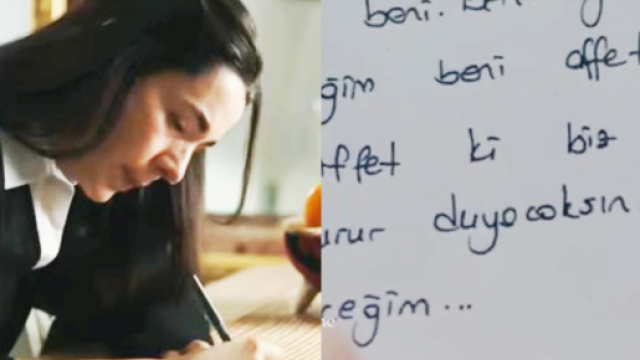 beni. ben
ğim beni affet
ffet ki biz
urur duyocoksın
ceğim...